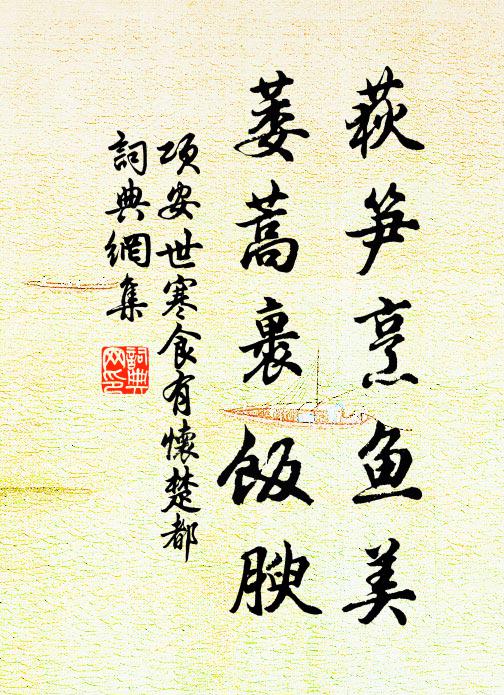 荻笋烹鱼美
蒌蒿裹饭腴
项安世寒食有懷楚都
詞典網集
詞典网印